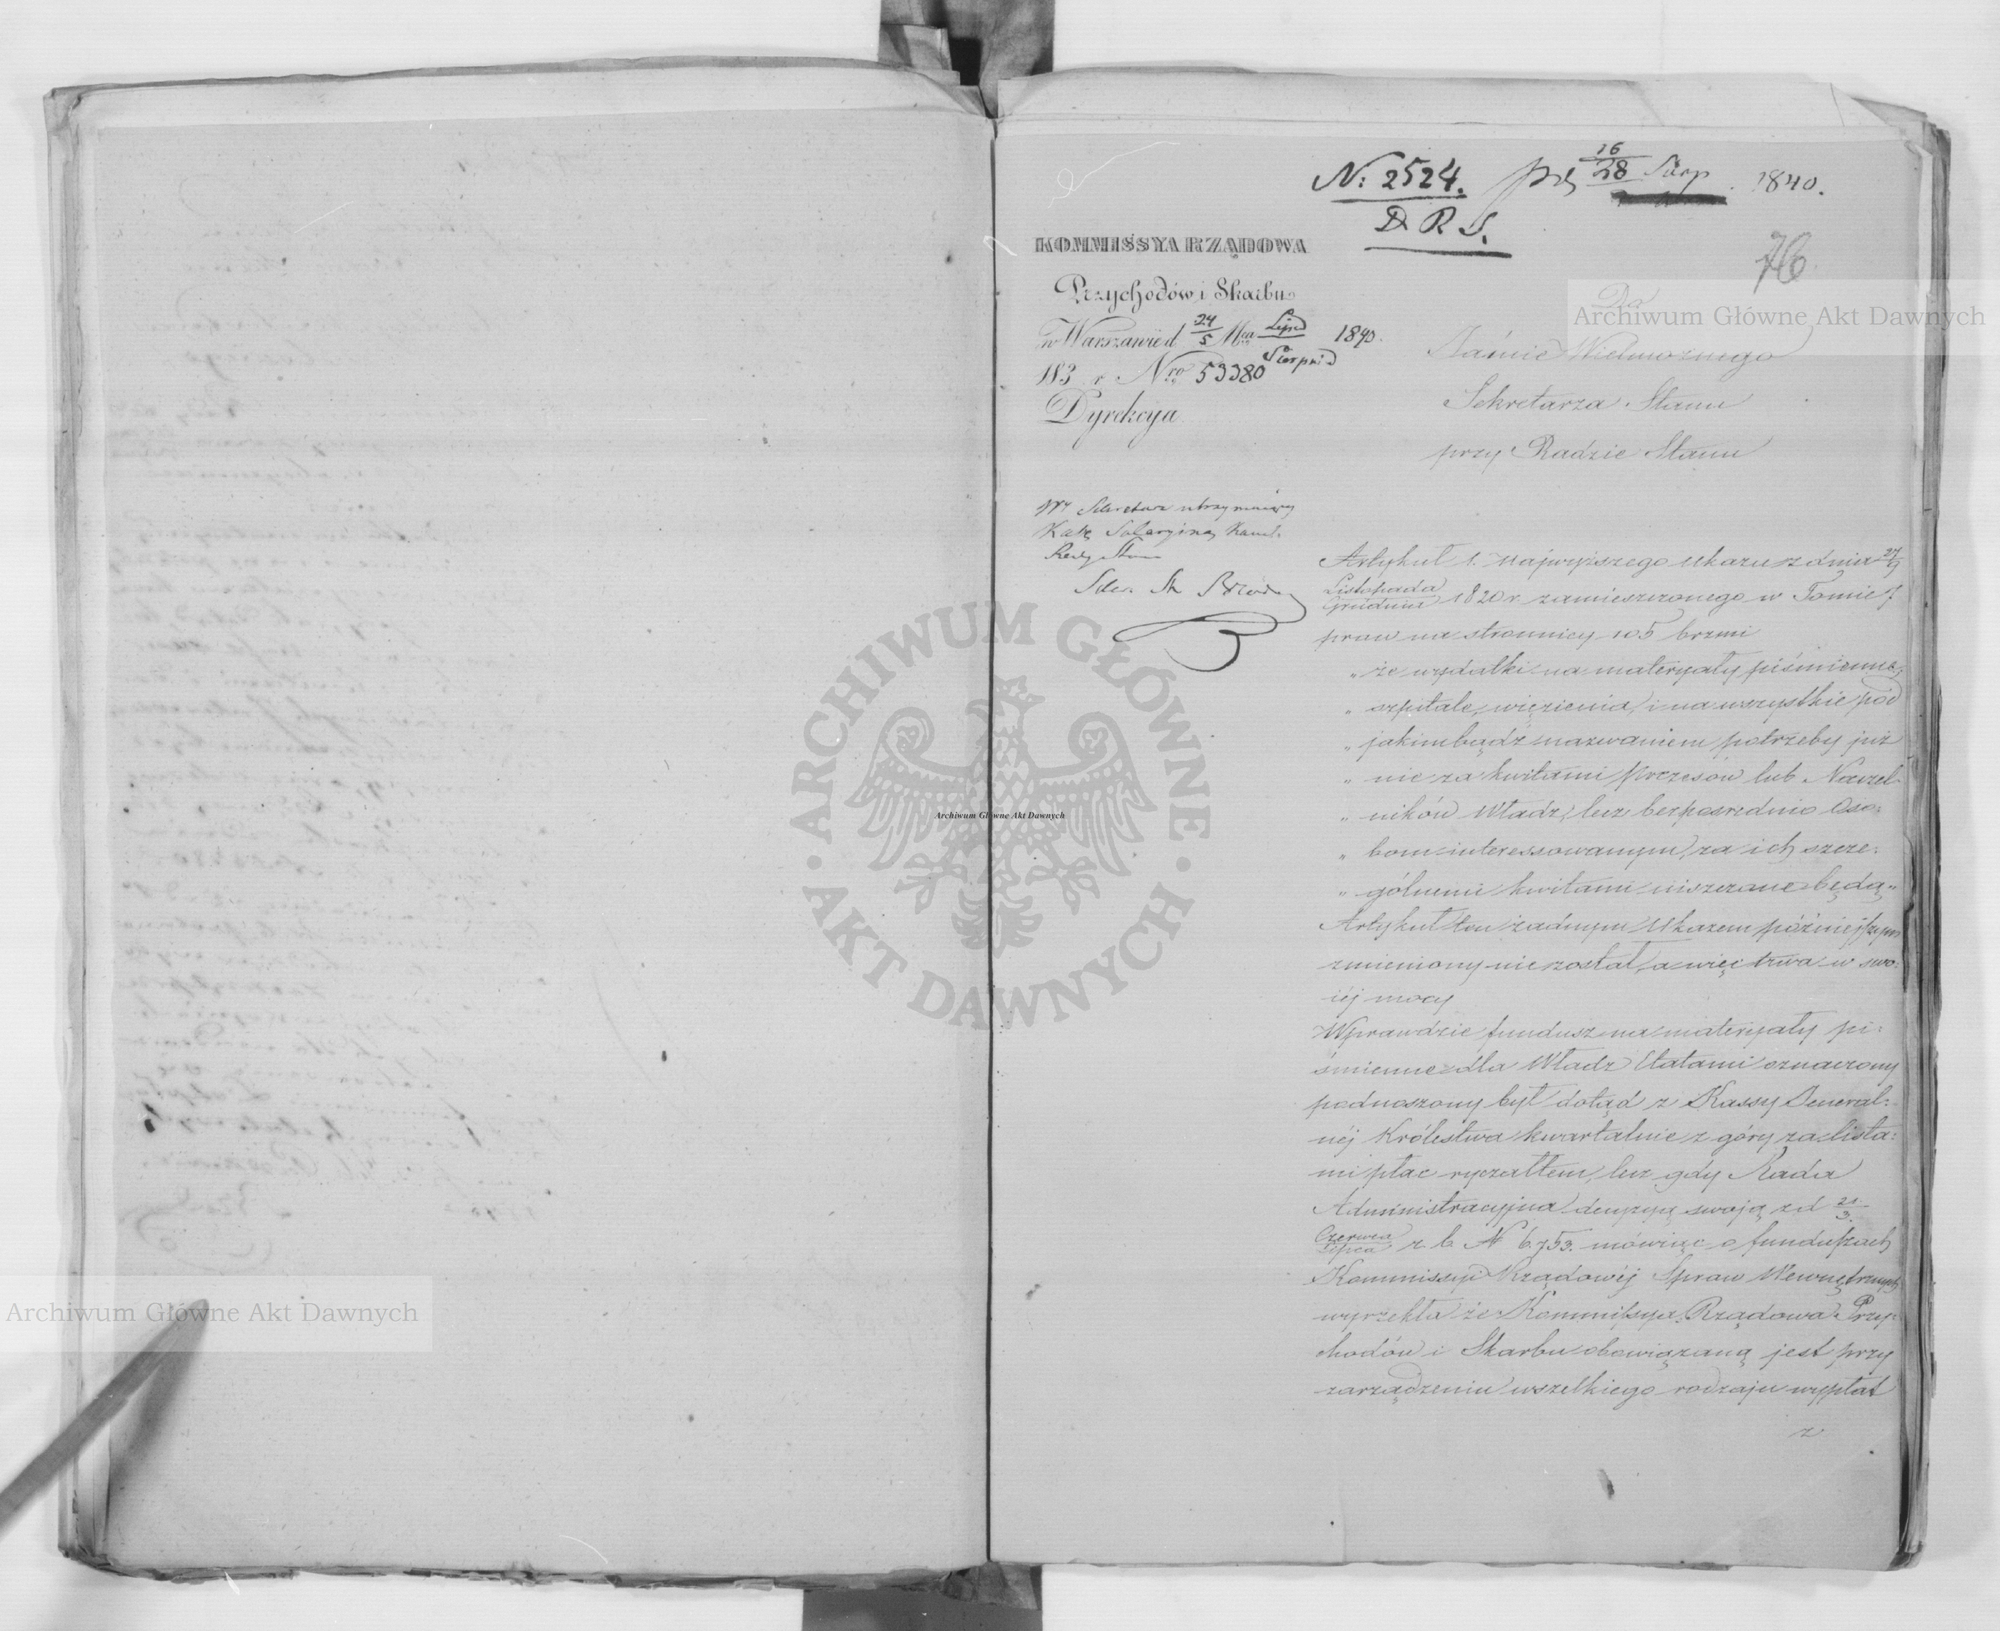 N: 2524. prs 16/28 Sierp 1840.
D. R. S.
76
KOMMISSYA RZĄDOWA
Przychodów i Skarbu
w Warszawie d 24/5 Mca Lipca/Sierpnia 1840.
183 r Nro 53380
Dyrekcya
Do
Jaśnie Wielmożnego
Sekretarza Stanu
przy Radzie Stanu
Wy Sekretarz utrzymujący
Sekr. St
Artykuł 1. Najwyższego Ukazu z dnia 27/9
Listopada/Grudnia 1820 r. zamieszczonego w Tomie 7
praw na stronnicy 105 brzmi
„ że wydatki na materyały piśmienne,
„ szpitale, więzienia, i na wszystkie pod
„ jakimbądź nazwaniem potrzeby już
„ nie za kwitami Prezesów lub Naczel-
„ ników Władz, lecz bezpośrednio Oso:
„ bom interessowanym, za ich szcze:
„ gólnemi kwitami uiszczane będą „
Artykuł ten żadnym Ukazem późniejszym
zmieniony nie został, a więc trwa w swo:
iéj mocy
Wprawdzie fundusz na materyały pi:
śmienne dla Władz Etatami oznaczony
podnoszony był dotąd z Kassy General:
néj Królestwa kwartalnie z góry za lista:
mi płac ryczałtem, lecz gdy Rada
Administracyjna decyzyą swoją z d 21/3.
Czerwca/Lipca r. b. N 6,753. mówiąc o funduszach
Kommissyi Rządowéj Spraw Wewnętrznych
wyrzekła że Kommissya Rządowa Przy:
chodów i Skarbu obowiązaną jest przy
zarządzeniu wszelkiego rodzaju wypłat
z
ARCHIWUM GŁÓWNE
AKT DAWNYCH
Archiwum Główne Akt Dawnych
Archiwum Główne Akt Dawnych
Archiwum Główne Akt Dawnych